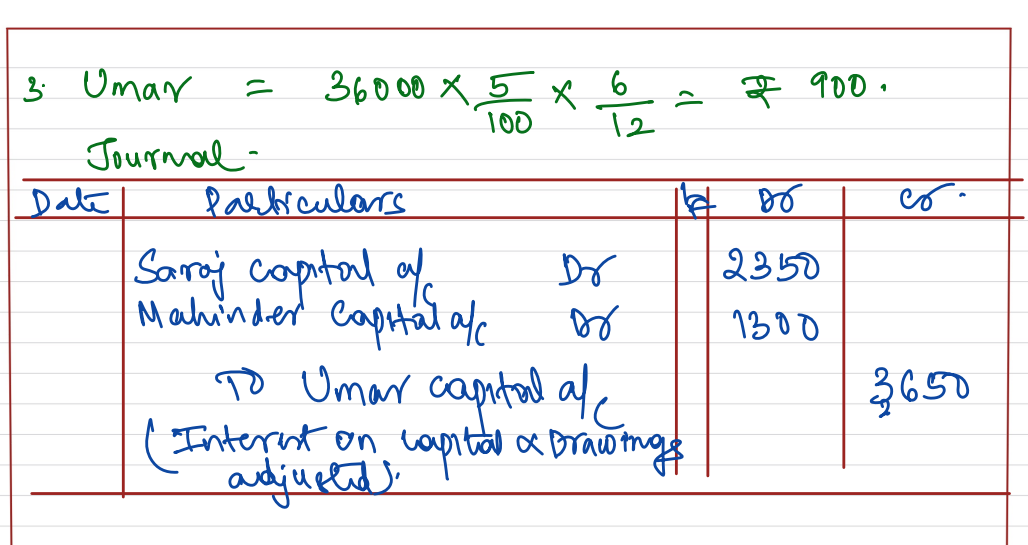 3. Umar = 36000 × 5/100 × 6/12 = ₹ 900.
Journal -
Date Particulars Lf Dr Cr.
Saroj capital a/c Dr 2350
Mahinder capital a/c Dr 1300
To Umar capital a/c 3650
(Interest on capital & Drawings
adjusted).